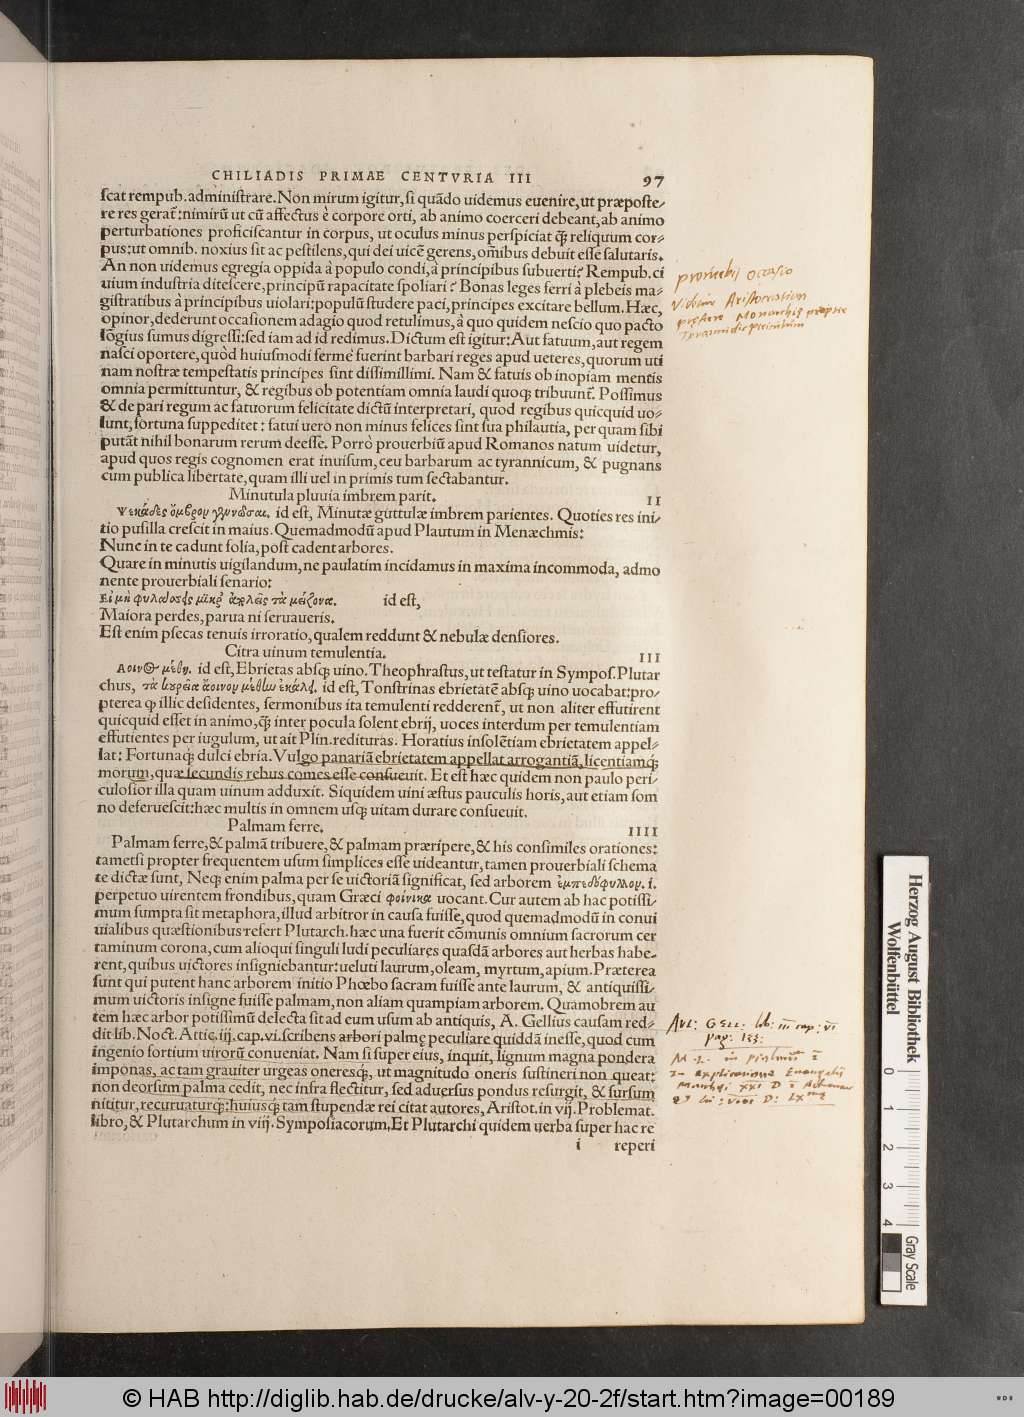 CHILIADIS PRIMAE CENTVRIA III 97
scat rempub. administrare. Non mirum igitur, si quādo uidemus euenire, ut præposte-
re res gerat̃: nimirū ut cū affectus è corpore orti, ab animo coerceri debeant, ab animo
perturbationes proficiscantur in corpus, ut oculus minus perspiciat q̃ reliquum cor-
pus: ut omnib. noxius sit ac pestilens, qui dei uicē gerens, om̄ibus debuit esse salutaris.
An non uidemus egregia oppida à populo condi, à principibus subuerti? Rempub. ci
uium industria ditescere, principū rapacitate spoliari? Bonas leges ferri à plebeis ma-
gistratibus à principibus uiolari: populū studere paci, principes excitare bellum. Hæc,
opinor, dederunt occasionem adagio quod retulimus, à quo quidem nescio quo pacto
lōgius sumus digressi: sed iam ad id redimus. Dictum est igitur: Aut fatuum, aut regem
nasci oportere, quòd huiusmodi fermè fuerint barbari reges apud ueteres, quorum uti
nam nostræ tempestatis principes sint dissimillimi. Nam & fatuis ob inopiam mentis
omnia permittuntur, & regibus ob potentiam omnia laudi quoq; tribuunt̃. Possimus
& de pari regum ac fatuorum felicitate dictū interpretari, quod regibus quicquid uo-
lunt, fortuna suppeditet: fatui uero non minus felices sint sua philautia, per quam sibi
putāt nihil bonarum rerum deesse. Porrò prouerbiū apud Romanos natum uidetur,
apud quos regis cognomen erat inuisum, ceu barbarum ac tyrannicum, & pugnans
cum publica libertate, quam illi uel in primis tum sectabantur.
Minutula pluuia imbrem parit. II
Ψεκάδες ὄμβρον γεννῶσαι. id est, Minutæ guttulæ imbrem parientes. Quoties res ini-
tio pusilla crescit in maius. Quemadmodū apud Plautum in Menæchmis:
Nunc in te cadunt folia, post cadent arbores.
Quare in minutis uigilandum, ne paulatim incidamus in maxima incommoda, admo
nente prouerbiali senario:
Εἰ μὴ φυλάσσῃς μίκρ' ἀπολεῖς τὰ μείζονα. id est,
Maiora perdes, parua ni seruaueris.
Est enim psecas tenuis irroratio, qualem reddunt & nebulæ densiores.
Citra uinum temulentia. III
Αοινος μέθη. id est, Ebrietas absq; uino. Theophrastus, ut testatur in Sympos. Plutar
chus, τὰ κουρεῖα ἄοινον μέθην ἐκάλει. id est, Tonstrinas ebrietatē absq; uino uocabat: pro-
pterea q illic desidentes, sermonibus ita temulenti redderent̃, ut non aliter effutirent
quicquid esset in animo, q̃ inter pocula solent ebrij, uoces interdum per temulentiam
effutientes per iugulum, ut ait Plin. redituras. Horatius insolētiam ebrietatem appel-
lat: Fortunaq; dulci ebria. Vulgo panariā ebrietatem appellat arrogantiā, licentiamq;
morum, quæ secundis rebus comes esse consueuit. Et est hæc quidem non paulo peri
culosior illa quam uinum adduxit. Siquidem uini æstus pauculis horis, aut etiam som
no deferuescit: hæc multis in omnem usq; uitam durare consueuit.
Palmam ferre. IIII
Palmam ferre, & palmā tribuere, & palmam præripere, & his consimiles orationes:
tametsi propter frequentem usum simplices esse uideantur, tamen prouerbiali schema
te dictæ sunt, Neq; enim palma per se uictoriā significat, sed arborem ἐμπεδόφυλλον. i.
perpetuo uirentem frondibus, quam Græci φοίνικα uocant. Cur autem ab hac potissi-
mum sumpta sit metaphora, illud arbitror in causa fuisse, quod quemadmodū in conui
uialibus quæstionibus refert Plutarch. hæc una fuerit cōmunis omnium sacrorum cer
taminum corona, cum alioqui singuli ludi peculiares quasdā arbores aut herbas habe-
rent, quibus uictores insigniebantur: ueluti laurum, oleam, myrtum, apium. Præterea
sunt qui putent hanc arborem initio Phœbo sacram fuisse ante laurum, & antiquissi-
mum uictoris insigne fuisse palmam, non aliam quampiam arborem. Quamobrem au
tem hæc arbor potissimū delecta sit ad eum usum ab antiquis, A. Gellius causam red-
dit lib. Noct. Attic. iij. cap. vi. scribens arbori palmę peculiare quiddā inesse, quod cum
ingenio fortium uirorū conueniat. Nam si super eius, inquit, lignum magna pondera
imponas, ac tam grauiter urgeas oneresq;, ut magnitudo oneris sustineri non queat:
non deorsum palma cedit, nec infra flectitur, sed aduersus pondus resurgit, & sursum
nititur, recuruaturq;: huiusq; tam stupendæ rei citat autores, Aristot. in vij. Problemat.
libro, & Plutarchum in viij. Symposiacorum. Et Plutarchi quidem uerba super hac re
i reperi
prouerbij occasio
AVL: GELL: lib: III cap: VI
pag: 133:
Herzog August Bibliothek
Wolfenbüttel
0 1 2 3 4
Gray Scale
© HAB http://diglib.hab.de/drucke/alv-y-20-2f/start.htm?image=00189